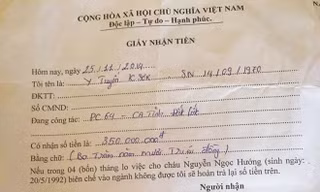 CỘNG HÒA XÃ HỘI CHỦ NGHĨA VIỆT NAM
Độc lập - Tự do - Hạnh phúc.
GIẤY NHẬN TIỀN
Hôm nay, ngày 25/11/2014
Tôi tên là: Y Tuyển Ksor SN 14/09/1970
ĐKTT:
Số CMND:
Đang công tác: PC64 - CA Tỉnh Đắk Lắk
Có nhận số tiền là: 350.000.000đ
Bằng chữ: (Ba Trăm năm mươi Triệu đồng)
Nếu trong 04 (bốn) tháng lo việc cho cháu Nguyễn Ngọc Hường (sinh ngày:
20/5/1992) biên chế vào ngành không được tôi sẽ hoàn trả lại số tiền trên.
Người nhận